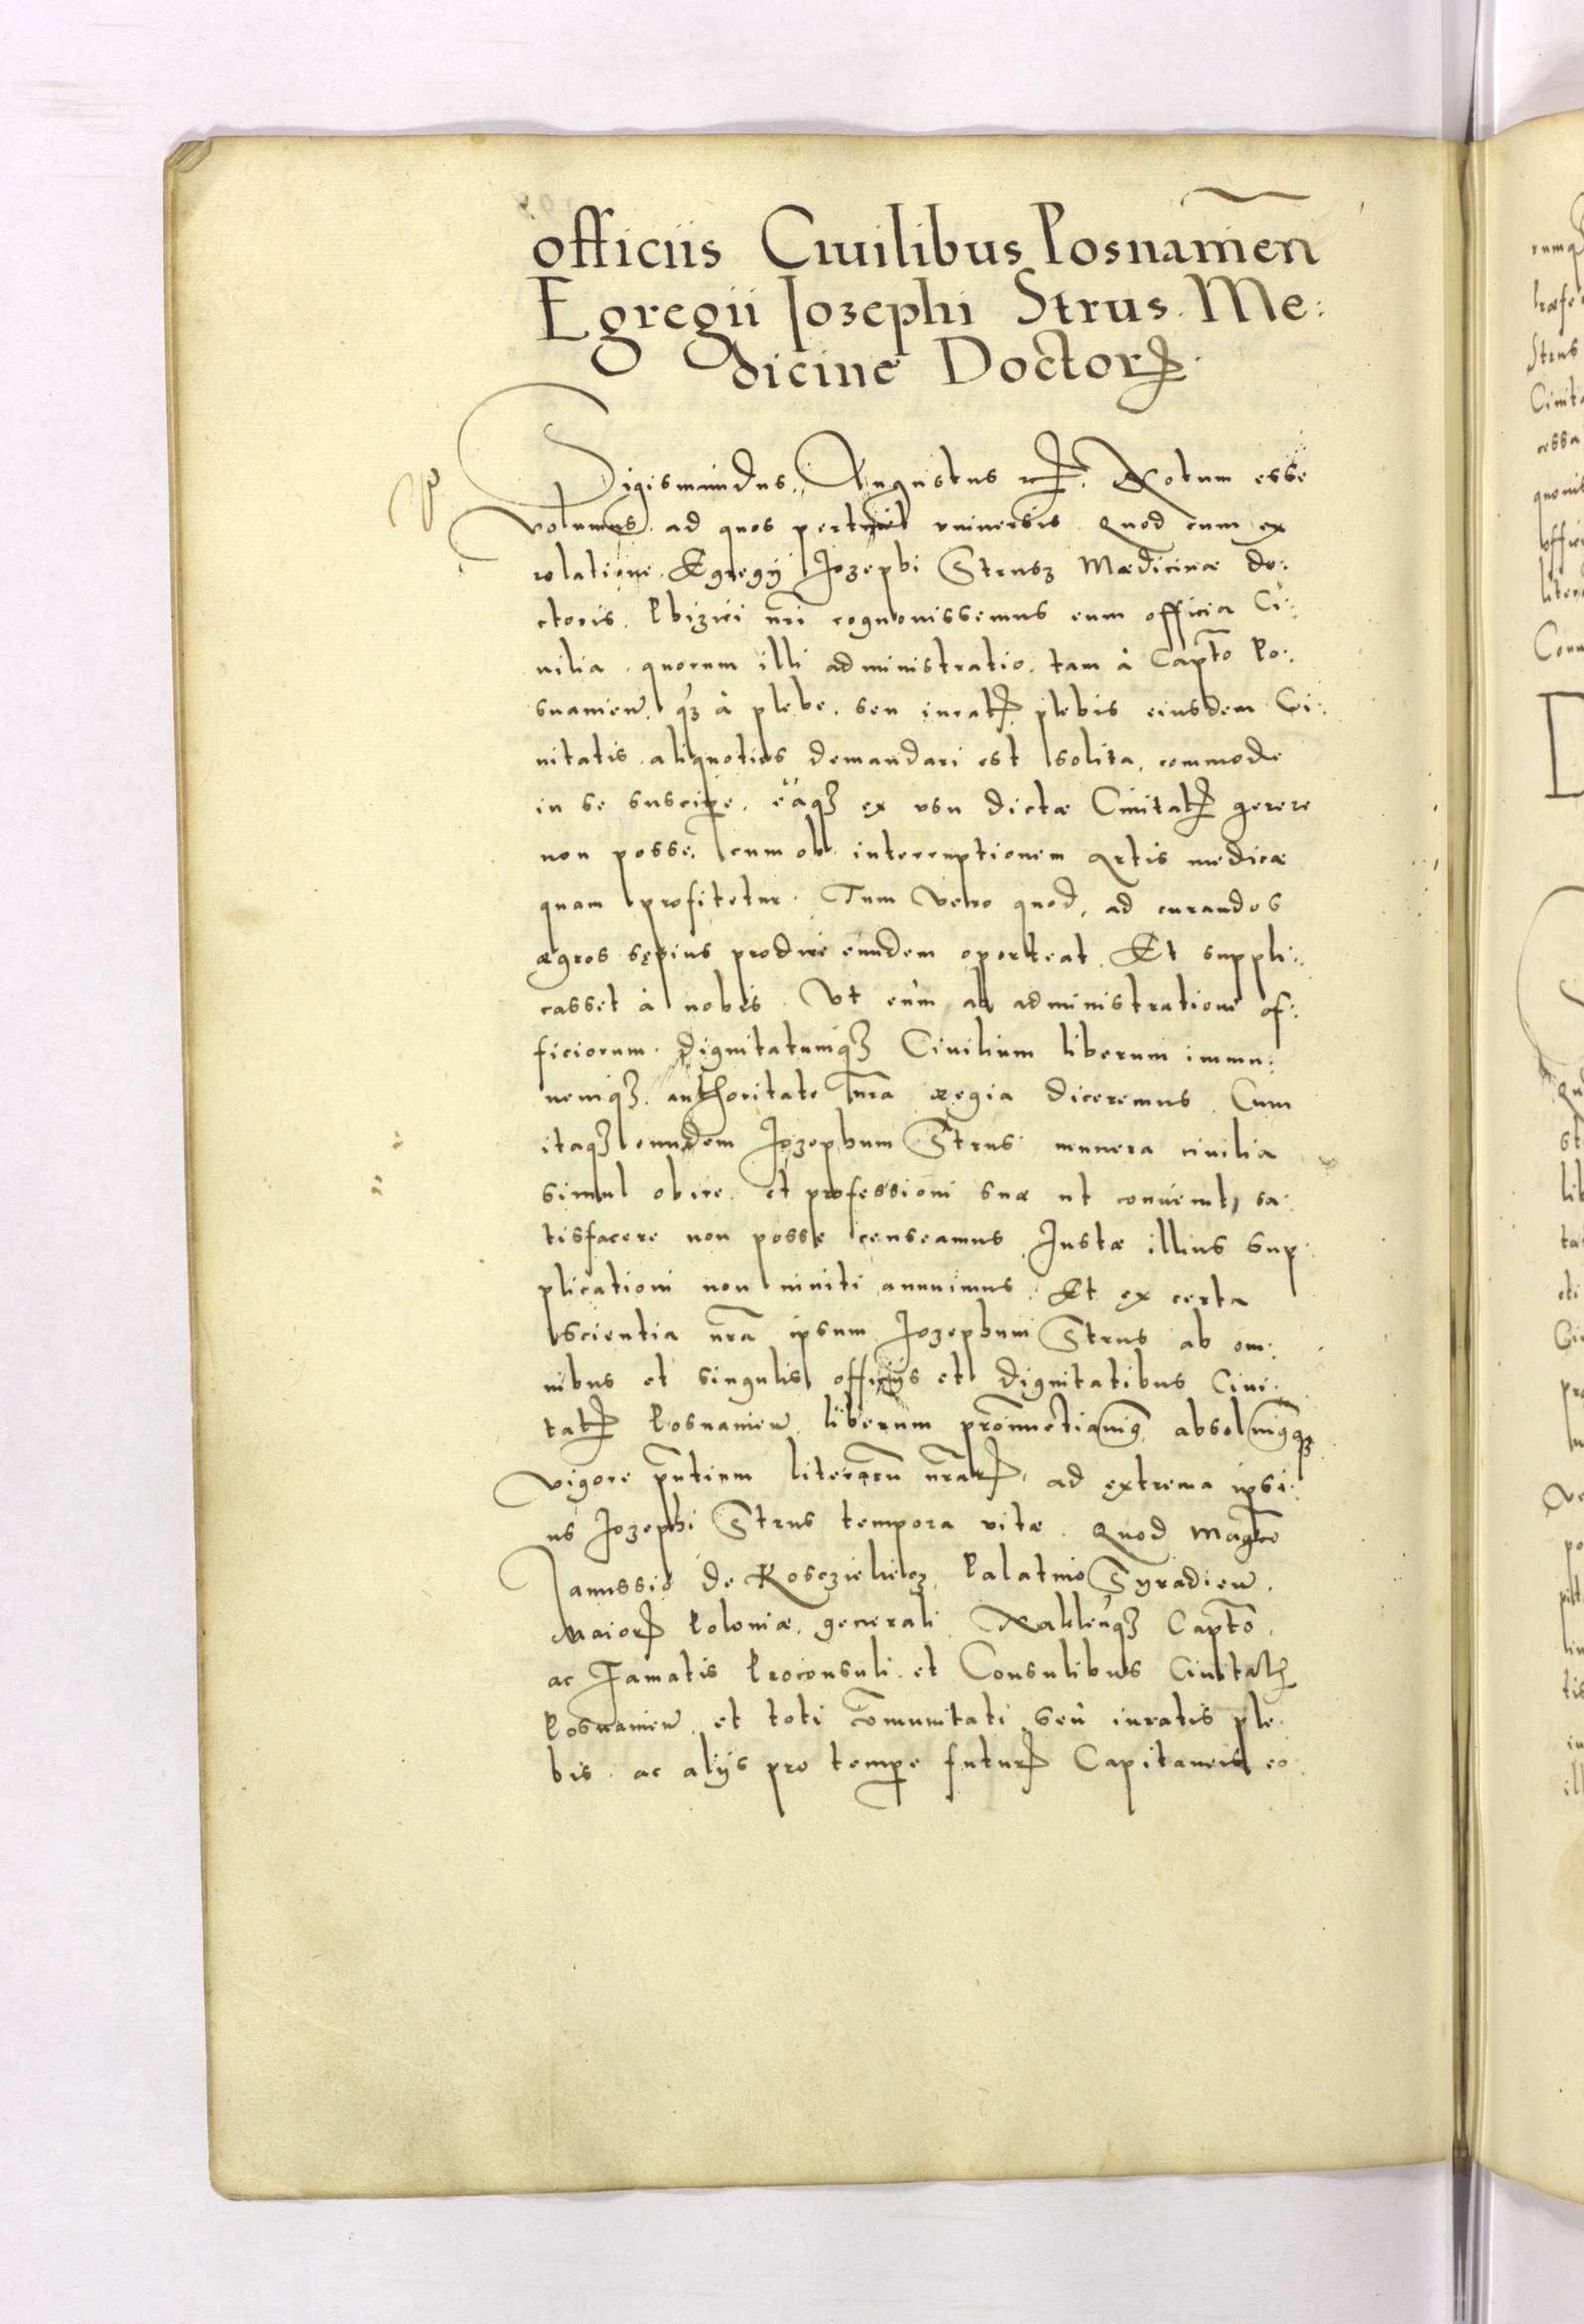 officiis Ciuilibus Posnanien̄
Egregii Jozephi Strus. Me:
dicine Doctorꝭ.
Sigismundus Augustus ꝛꝭ. Notum esse
volumus. ad quos pertinet vniuersis. Quod cum ex
relatione. Egregij Jozephi Strusz Mædicinæ do:
ctoris. Phizici nr̄i cognouissemus eum officia Ci:
uilia. quorum illi administratio. tam à Capt̄o Po:
snanien̄. qꝫ à plebe. seu iuratꝭ plebis eiusdem Ci:
uitatis. aliquoties demandari est solita. commode
in se suscipe. eaqꝫ ex vsu dictæ Ciuitatꝭ gerere
non posse. cum ob interruptionem artis medicæ
quam profitetur. Tum vero quod. ad curandos
ægros sępius prodire eundem oporteat. Et suppli:
casset à nobis. Vt eum ab administratione of:
ficiorum. dignitatumqꝫ Ciuilium liberum immu:
nemqꝫ. authoritate nr̄a regia diceremus. Cum
itaqꝫ eundem Jozephum Strus munera ciuilia
simul obire. et professioni suæ ut conuenit, sa:
tisfacere non posse censeamus. Justæ illius sup
plicationi non inuiti annuimus. Et ex certa
scientia nr̄a ipsum Jozephum Strus ab om:
nibus et singulis officijs et dignitatibus Ciui:
tatꝭ Posnanien̄. liberum pronunctiamꝰ absoluimꝰqꝫ
vigore pn̄tium literarū nr̄arꝭ. ad extrema ipsi:
us Jozephi Strus tempora vitæ. Quod Magco
Janussio de Kosczieliecz. Palatino Syradien̄.
Maiorꝭ Poloniæ. generali. Naklen̄qꝫ Capt̄o.
ac Famatis Proconsuli. et Consulibus Ciuitatꝭ
Posnanien̄. et toti cōmunitati seu iuratis ple.
bis. ac alijs pro tempe futurꝭ Capitaneis eo.